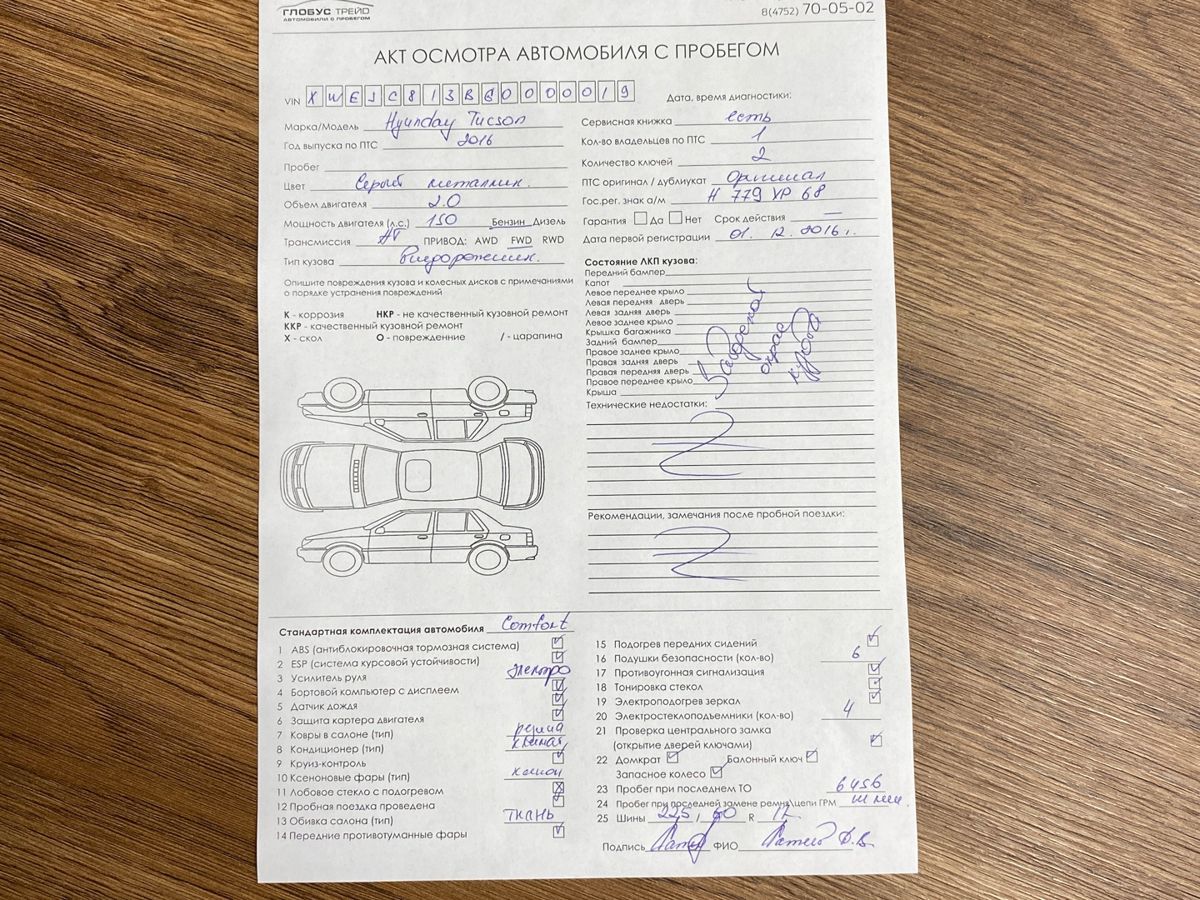 ГЛОБУС ТРЕЙД
АВТОМОБИЛИ С ПРОБЕГОМ
8(4752) 70-05-02
АКТ ОСМОТРА АВТОМОБИЛЯ С ПРОБЕГОМ
VIN X W E J C 8 1 3 B G 0 0 0 0 0 1 9
Дата, время диагностики:
Марка/Модель Hyunday Tucson
Год выпуска по ПТС 2016
Пробег
Цвет Серый металлик.
Объем двигателя 2.0
Мощность двигателя (л.с.) 150 Бензин Дизель
Трансмиссия АТ ПРИВОД: AWD FWD RWD
Тип кузова Внедорожник.
Опишите повреждения кузова и колесных дисков с примечаниями
о порядке устранения повреждений
К - коррозия НКР - не качественный кузовной ремонт
ККР - качественный кузовной ремонт
Х - скол О - поврежденние / - царапина
Сервисная книжка есть
Кол-во владельцев по ПТС 1
Количество ключей 2
ПТС оригинал / дубликат Оригинал
Гос.рег. знак а/м Н 779 УР 68
Гарантия Да Нет Срок действия —
Дата первой регистрации 01. 12. 2016 г.
Состояние ЛКП кузова:
Передний бампер
Капот
Левое переднее крыло
Левая передняя дверь
Левая задняя дверь
Левое заднее крыло
Крышка багажника
Задний бампер
Правое заднее крыло
Правая задняя дверь
Правая передняя дверь
Правое переднее крыло
Крыша
Заводской
окрас
кузова
Технические недостатки:
Рекомендации, замечания после пробной поездки:
Стандартная комплектация автомобиля Comfort
1 ABS (антиблокировочная тормозная система)
2 ESP (система курсовой устойчивости)
3 Усилитель руля электро
4 Бортовой компьютер с дисплеем
5 Датчик дождя
6 Защита картера двигателя
7 Ковры в салоне (тип) резина
8 Кондиционер (тип) климат
9 Круиз-контроль
10 Ксеноновые фары (тип) ксенон
11 Лобовое стекло с подогревом
12 Пробная поездка проведена
13 Обивка салона (тип) ткань
14 Передние противотуманные фары
15 Подогрев передних сидений
16 Подушки безопасности (кол-во) 6
17 Противоугонная сигнализация
18 Тонировка стекол
19 Электроподогрев зеркал
20 Электростеклоподъемники (кол-во) 4
21 Проверка центрального замка
(открытие дверей ключами)
22 Домкрат Балонный ключ
Запасное колесо
23 Пробег при последнем ТО 6456
24 Пробег при последней замене ремня\цепи ГРМ
25 Шины 225 / 60 R 17
Подпись ФИО